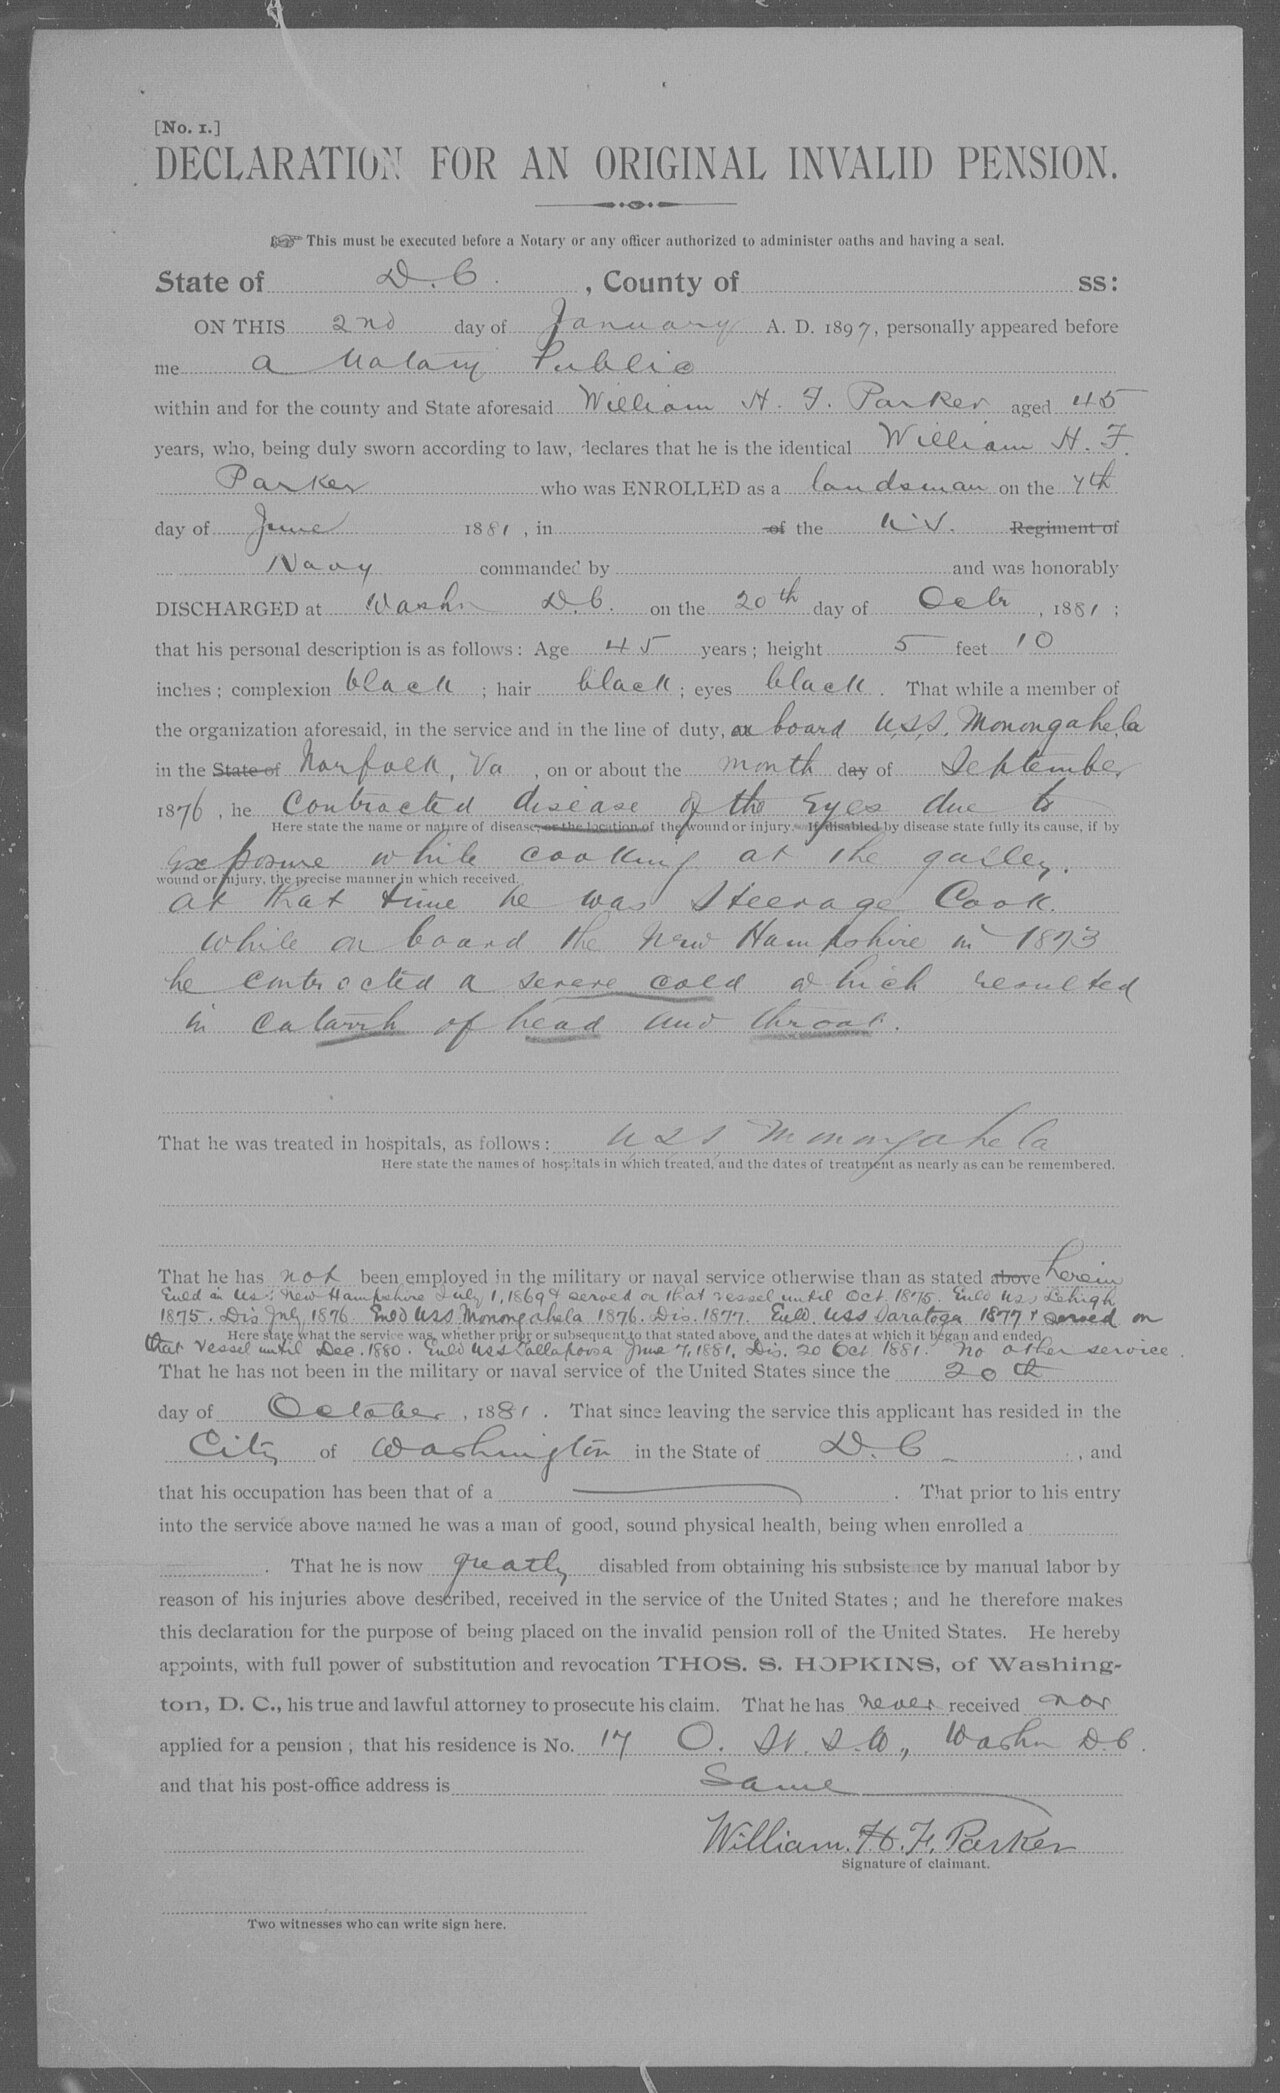 [No. 1.]
DECLARATION FOR AN ORIGINAL INVALID PENSION.
☞ This must be executed before a Notary or any officer authorized to administer oaths and having a seal.
State of D. C. , County of ss:
ON THIS 2nd day of January A. D. 1897, personally appeared before
me a Notary Public
within and for the county and State aforesaid William H. F. Parker aged 45
years, who, being duly sworn according to law, declares that he is the identical William H. F.
Parker who was ENROLLED as a landsman on the 7th
day of June 1881, in of the U.S. Regiment of
Navy commanded by and was honorably
DISCHARGED at Washn D.C. on the 20th day of Octr, 1881;
that his personal description is as follows: Age 45 years; height 5 feet 10
inches; complexion black; hair black; eyes black. That while a member of
the organization aforesaid, in the service and in the line of duty, on board U.S.S. Monongahela
in the State of Norfolk, Va, on or about the month day of September
1876, he contracted disease of the Eyes due to
Here state the name or nature of disease, or the location of the wound or injury. If disabled by disease state fully its cause, if by
exposure while cooking at the galley.
wound or injury, the precise manner in which received.
at that time he was Steerage Cook.
While on board the New Hampshire in 1873
he contracted a severe cold which resulted
in Catarrh of head and throat.
That he was treated in hospitals, as follows: U.S.S. Monongahela
Here state the names of hospitals in which treated, and the dates of treatment as nearly as can be remembered.
That he has not been employed in the military or naval service otherwise than as stated above herein
Enld in U.S.S. New Hampshire July 1, 1869 & served on that vessel until Oct. 1875. Enld U.S.S. Lehigh
1875. Dis. July 1876 Enld USS Monongahela 1876. Dis. 1877. Enld. USS Saratoga 1877 & served on
Here state what the service was, whether prior or subsequent to that stated above, and the dates at which it began and ended.
that vessel until Dec. 1880. Enld U.S.S Tallapoosa June 7, 1881, Dis. 20 Oct 1881. No other service.
That he has not been in the military or naval service of the United States since the 20th
day of October, 1881. That since leaving the service this applicant has resided in the
City of Washington in the State of D. C. , and
that his occupation has been that of a . That prior to his entry
into the service above named he was a man of good, sound physical health, being when enrolled a
. That he is now greatly disabled from obtaining his subsistence by manual labor by
reason of his injuries above described, received in the service of the United States; and he therefore makes
this declaration for the purpose of being placed on the invalid pension roll of the United States. He hereby
appoints, with full power of substitution and revocation THOS. S. HOPKINS, of Washing-
ton, D. C., his true and lawful attorney to prosecute his claim. That he has never received nor
applied for a pension; that his residence is No. 17 O. St. S.W., Washn D.C.
and that his post-office address is Same
William. H. F. Parker
Signature of claimant.
Two witnesses who can write sign here.